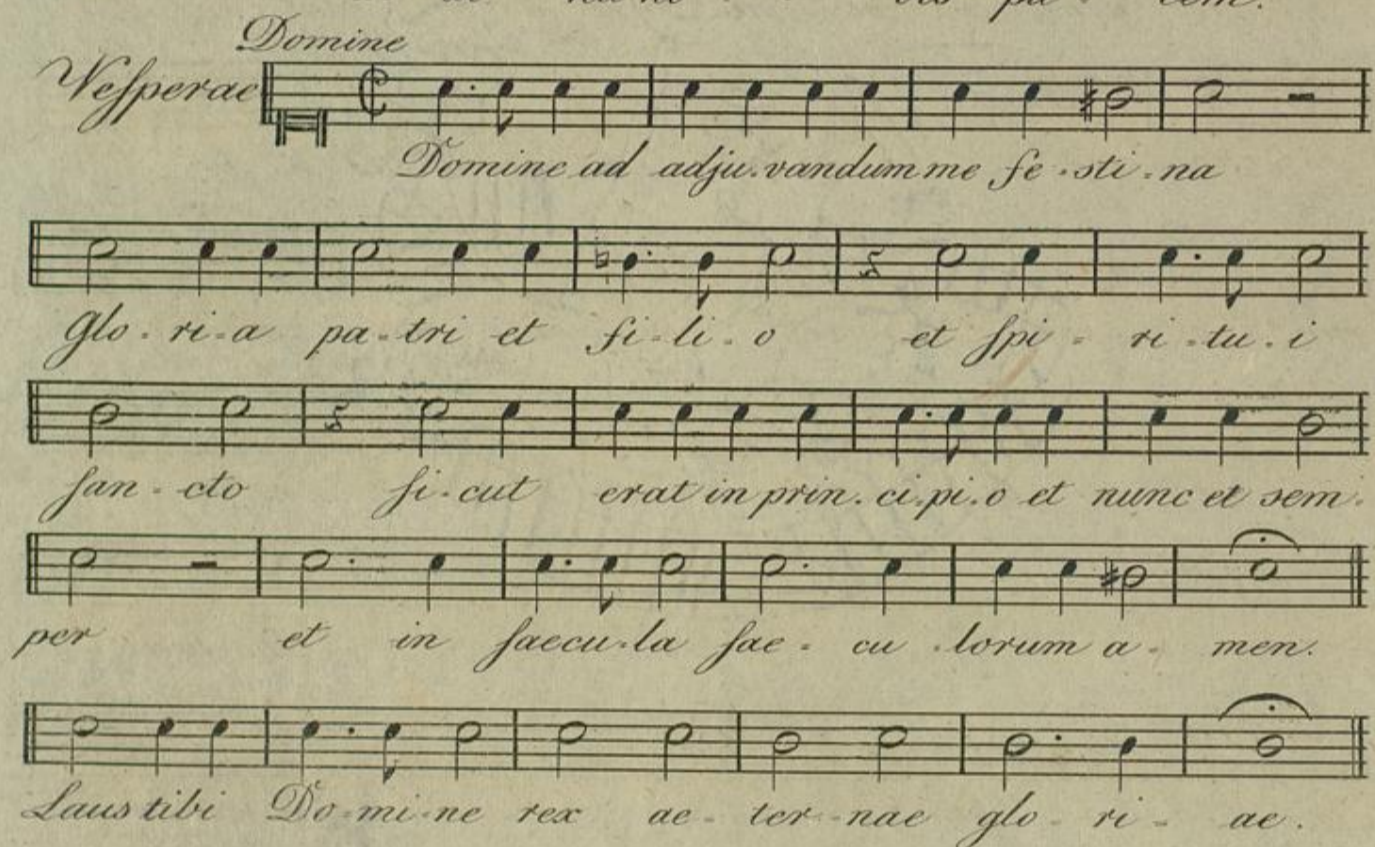 vis pa - cem.
Domine
Vesperae
Domine ad adju.vandum me fe.sti.na
Glo.ri.a pa-tri et fi-li.o et spi - ri.tu.i
san-cto si-cut erat in prin.ci.pi.o et nunc et sem.
per et in saecu.la sae - cu .lorum a - men.
Laus tibi Do-mi-ne rex ae - ter-nae glo - ri - ae.